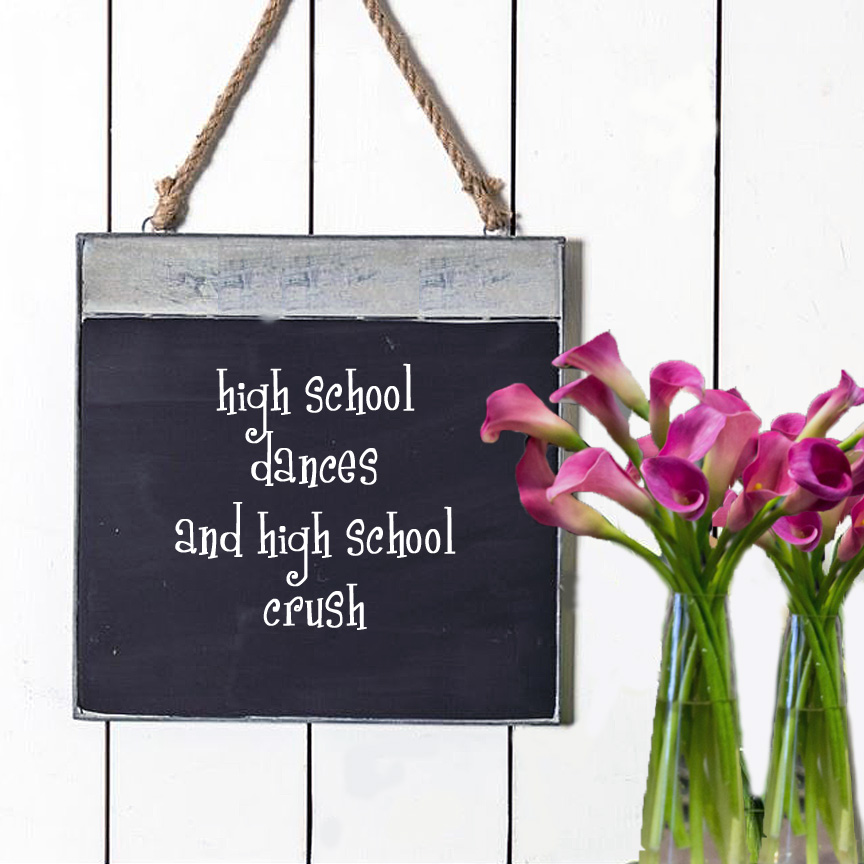 high school
dances
and high school
crush